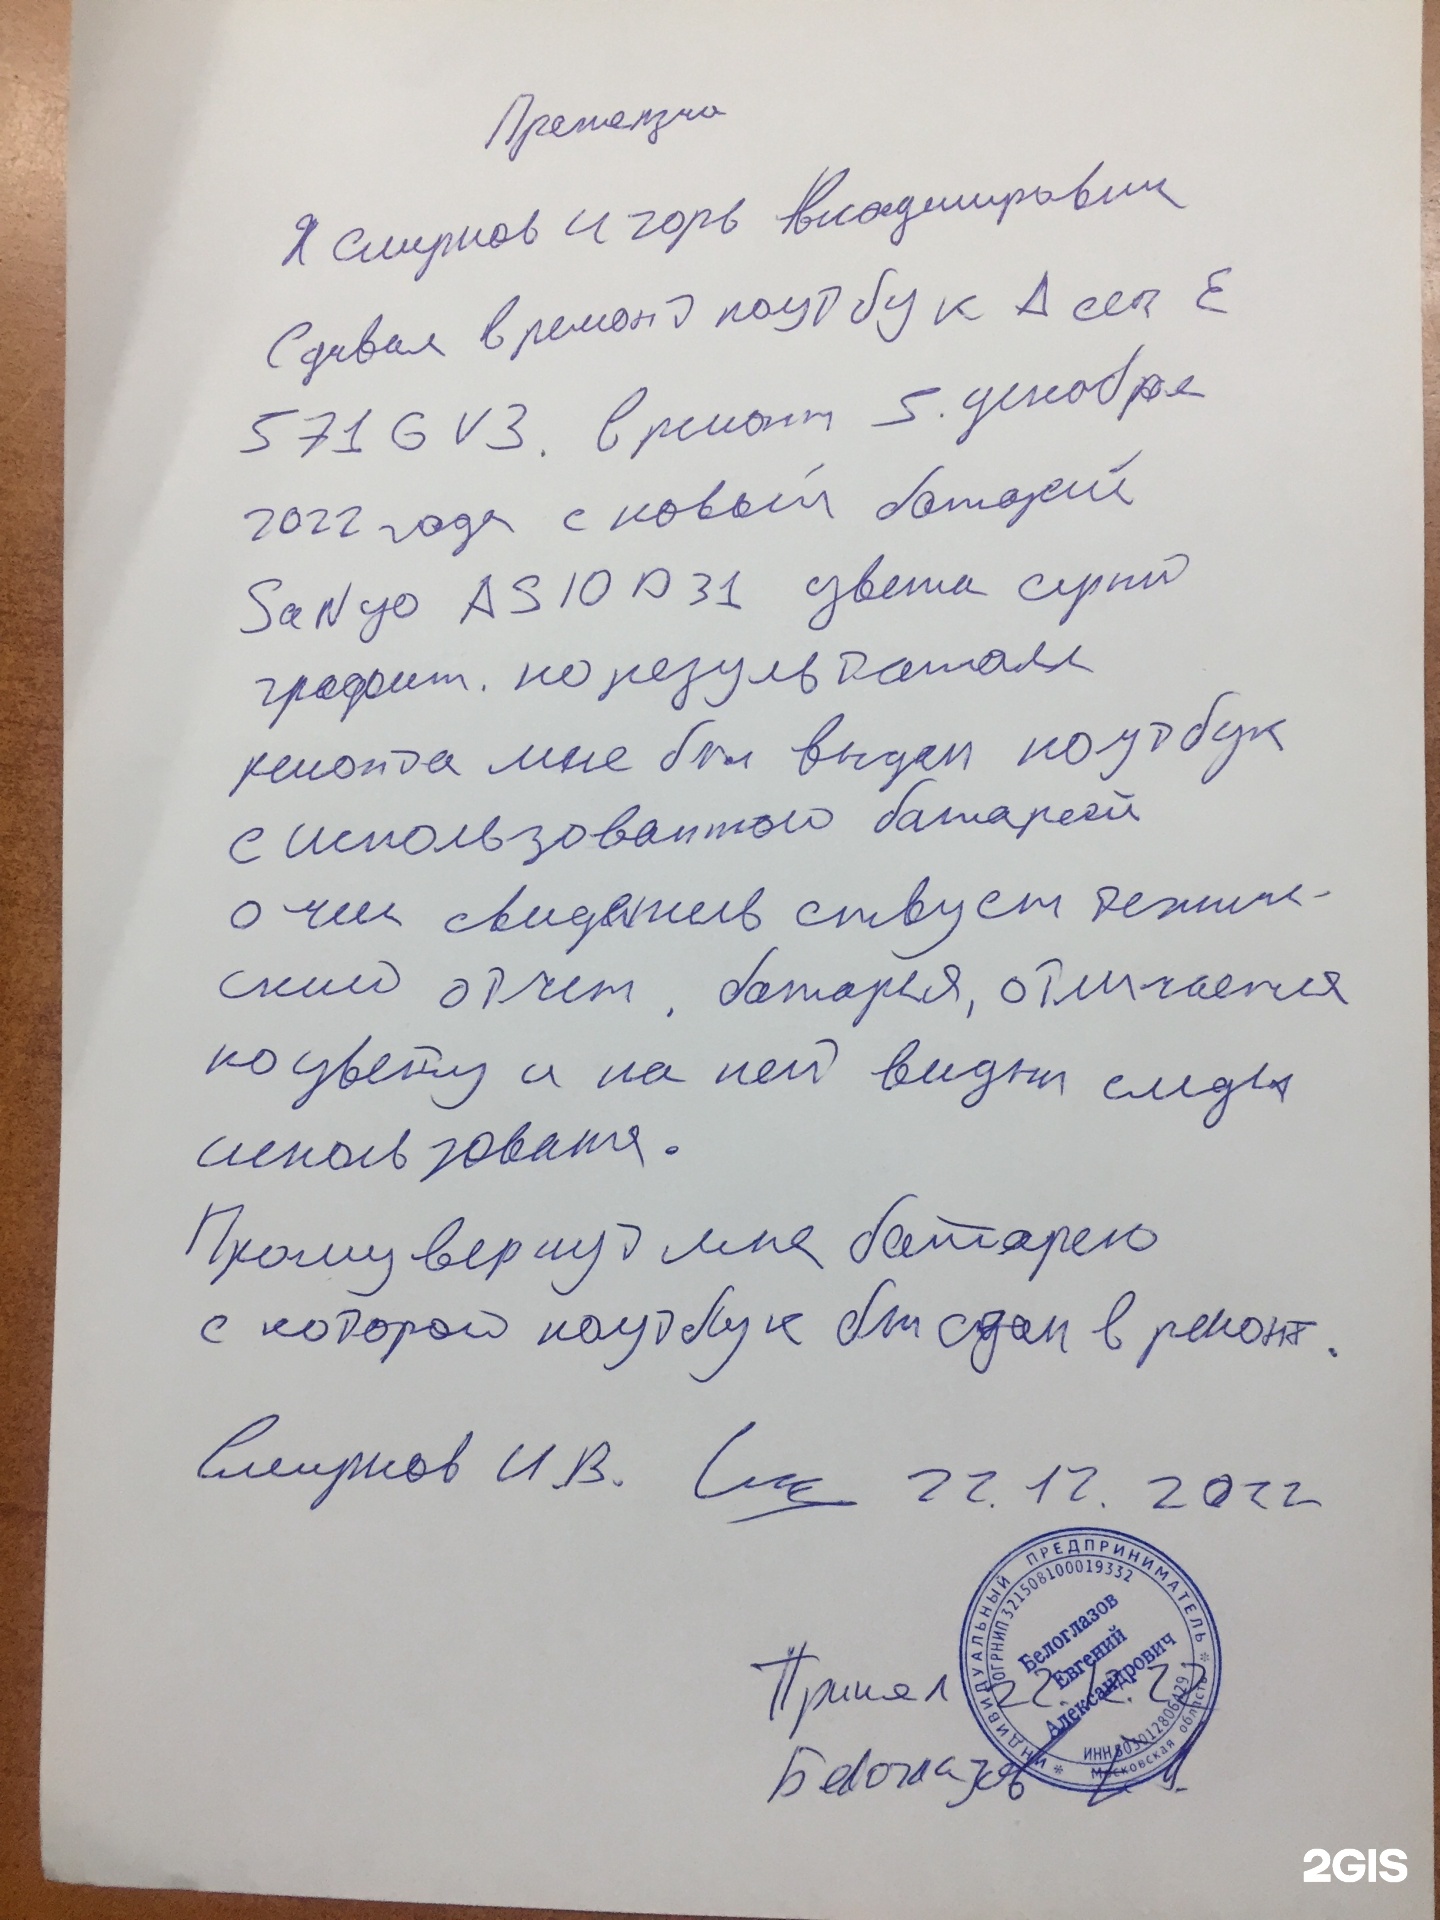 Претензия
Я Смирнов Игорь Владимирович
Сдавал в ремонт ноутбук Acer E
571G V3. в ремонт 5. декабря
2022 года с новый батарей
SaNyo AS10D31 цвета серый
графит. по результатам
ремонта мне был выдан ноутбук
с использованной батареей
о чем свидетельствует техниче-
ский отчет. батарея, отличается
по цвету и на ней видны следы
использования.
Прошу вернут мне батарею
с которой ноутбук был сдан в ремонт.
Смирнов И.В. 22.12.2022
ИНДИВИДУАЛЬНЫЙ ПРЕДПРИНИМАТЕЛЬ
ОГРНИП 321508100019332
Белоглазов
Евгений
Александрович
ИНН
Московская область
Принял 22.12.22
Белоглазов Е.А.
2GIS